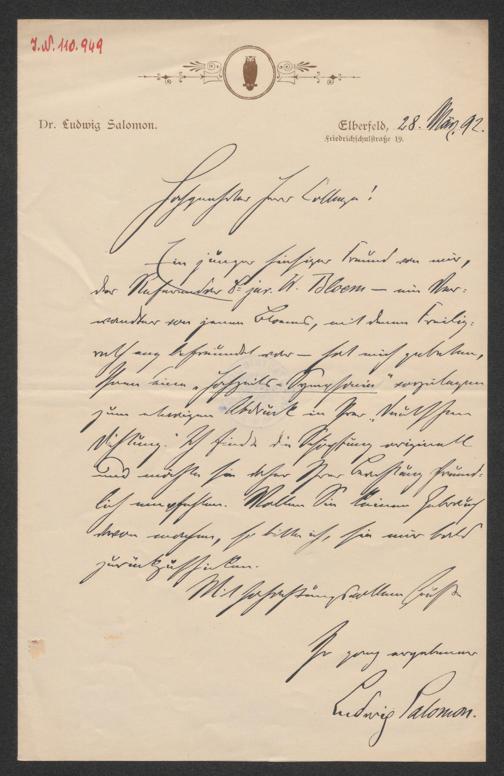 J.N. 110.949
Dr. Ludwig Salomon.
Elberfeld, 28. März 92.
Friedrichschulstraße 19.
Hochgeehrter Herr College!
Ein junger hiesiger Freund von mir,
der Referendar Dr. jur. W. Bloem – ein Ver-
wandter von jenem Bloem, mit dem Freilig-
rath eng befreundet war – hat mich gebeten,
Ihnen eine „Hochzeits-Symphonie" vorzulegen
zum etwaigen Abdruck in Ihrer „Deutschen
Dichtung." Ich finde die Schöpfung originell
und möchte sie daher Ihrer Beachtung freund-
lich empfehlen. Wollen Sie keinen Gebrauch
davon machen, so bitte ich, sie mir bald
zurückzuschicken.
Mit hochachtungsvollem Gruße
Ihr ganz ergebener
Ludwig Salomon.